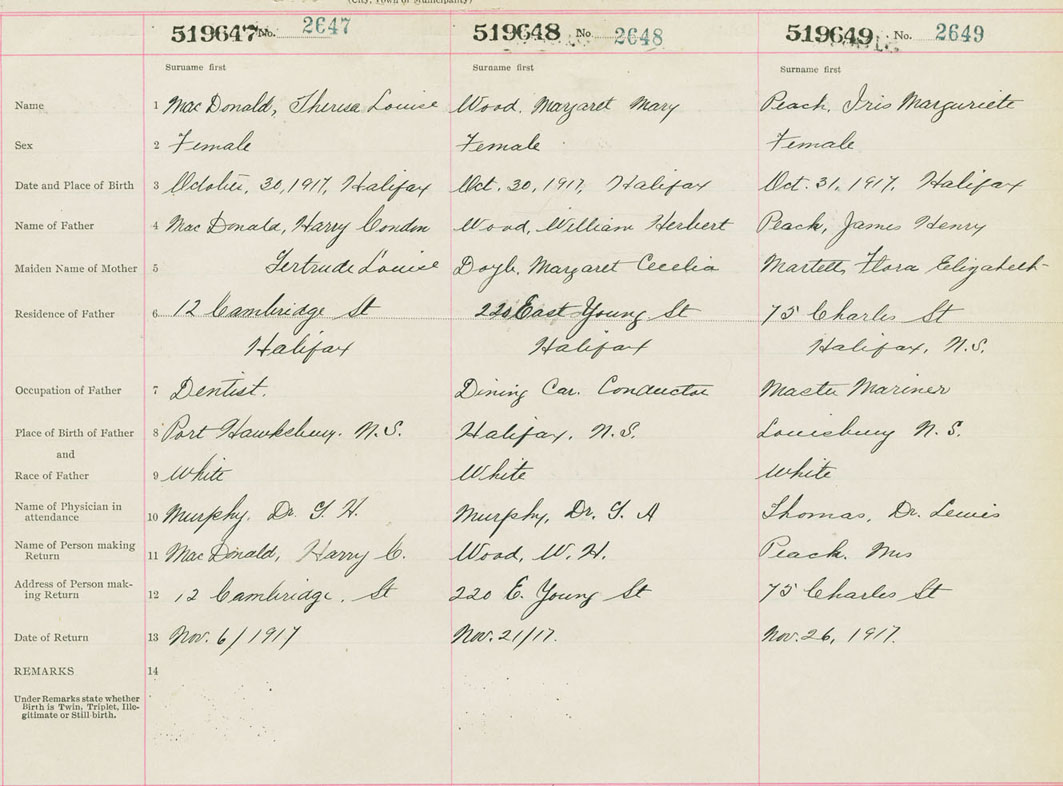 (City, Town or Municipality)
519647 No. 2647 519648 No. 2648 519649 No. 2649
Surname first Surname first Surname first
Name 1 MacDonald, Theresa Louise Wood, Margaret Mary Peach, Iris Marguriete
Sex 2 Female Female Female
Date and Place of Birth 3 October, 30, 1917, Halifax Oct. 30, 1917, Halifax Oct. 31, 1917, Halifax
Name of Father 4 MacDonald, Harry Condon Wood, William Herbert Peach, James Henry
Maiden Name of Mother 5 Gertrude Louise Doyle, Margaret Cecelia Martell, Flora Elizabeth
Residence of Father 6 12 Cambridge St 220 East Young St 75 Charles St
Halifax Halifax Halifax, N.S.
Occupation of Father 7 Dentist. Dining Car. Conductor Master Mariner
Place of Birth of Father 8 Port Hawksbury. N.S. Halifax, N.S. Louisburg N.S.
and
Race of Father 9 White White White
Name of Physician in
attendance 10 Murphy, Dr. G. H. Murphy, Dr. G. A Thomas, Dr. Lewis
Name of Person making
Return 11 MacDonald, Harry C. Wood, W. H. Peach. Mrs
Address of Person mak-
ing Return 12 12 Cambridge. St 220 E. Young St 75 Charles St
Date of Return 13 Nov. 6/1917 Nov. 21/17. Nov. 26, 1917.
REMARKS 14
Under Remarks state whether
Birth is Twin, Triplet, Ille-
gitimate or Still birth.